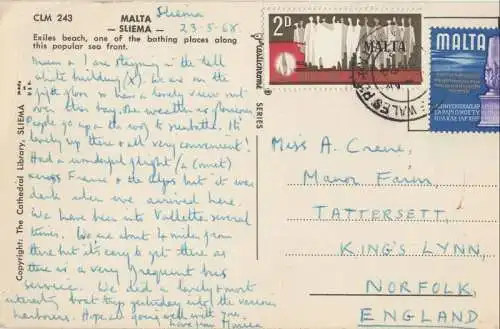 CLM 243
MALTA
– SLIEMA –
Exiles beach, one of the bathing places along
this popular sea front.
Sliema
23-5-68.
Mum & I are staying in the tall
white building (X). We are on the
floor so have a lovely view out
over this bay. The weather is glorious
People go up on the roof to sunbathe. It's
lovely up there & all very convenient!
Had a wonderful flight / (Comet)
across France & the Alps but it was
dark when we arrived here.
We have been into Vallette several
times. We are about 4 miles from
there but it's easy to get there as
there is a very frequent bus
service. We did a lovely & most
interesting boat trip yesterday into the various
harbours. Hope all going well with you.
Love from Monica
Copyright: The Cathedral Library, SLIEMA
Plastichrome ®
SERIES
2D
MALTA
MALTA
Miss A. Crane,
Manor Farm,
TATTERSETT,
KING'S LYNN,
NORFOLK,
ENGLAND.